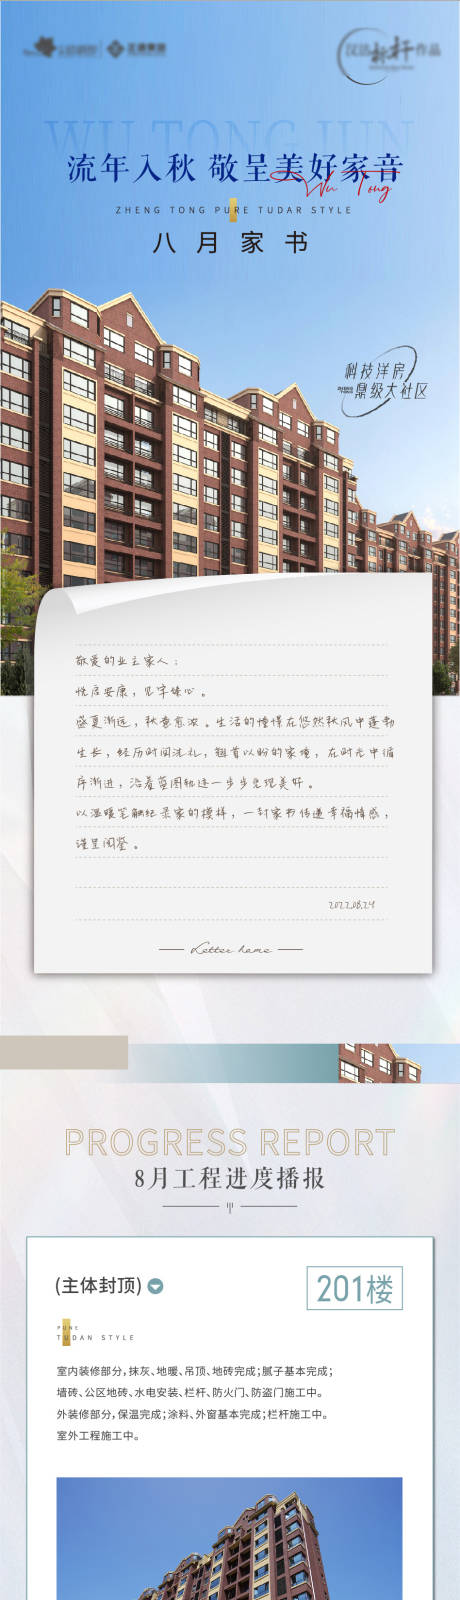 作品
WU TONG JUN
流年入秋 敬呈美好家音
Wu Tong
ZHENG TONG PURE TUDAR STYLE
八月家书
科技洋房
鼎级大社区
敬爱的业主家人：
悦居安康，见字臻心。
盛夏渐远，秋意愈浓。生活的憧憬在悠然秋风中蓬勃
生长，经历时间洗礼，翘首以盼的家境，在时光中循
序渐进，沿着蓝图轨迹一步步兑现美好。
以温暖笔触纪录家的模样，一封家书传递幸福情感，
谨呈阅鉴。
2022.08.24
Letter home
PROGRESS REPORT
8月工程进度播报
(主体封顶)
201楼
PUNE
TUDAN STYLE
室内装修部分,抹灰、地暖、吊顶、地砖完成;腻子基本完成;
墙砖、公区地砖、水电安装、栏杆、防火门、防盗门施工中。
外装修部分,保温完成;涂料、外窗基本完成;栏杆施工中。
室外工程施工中。